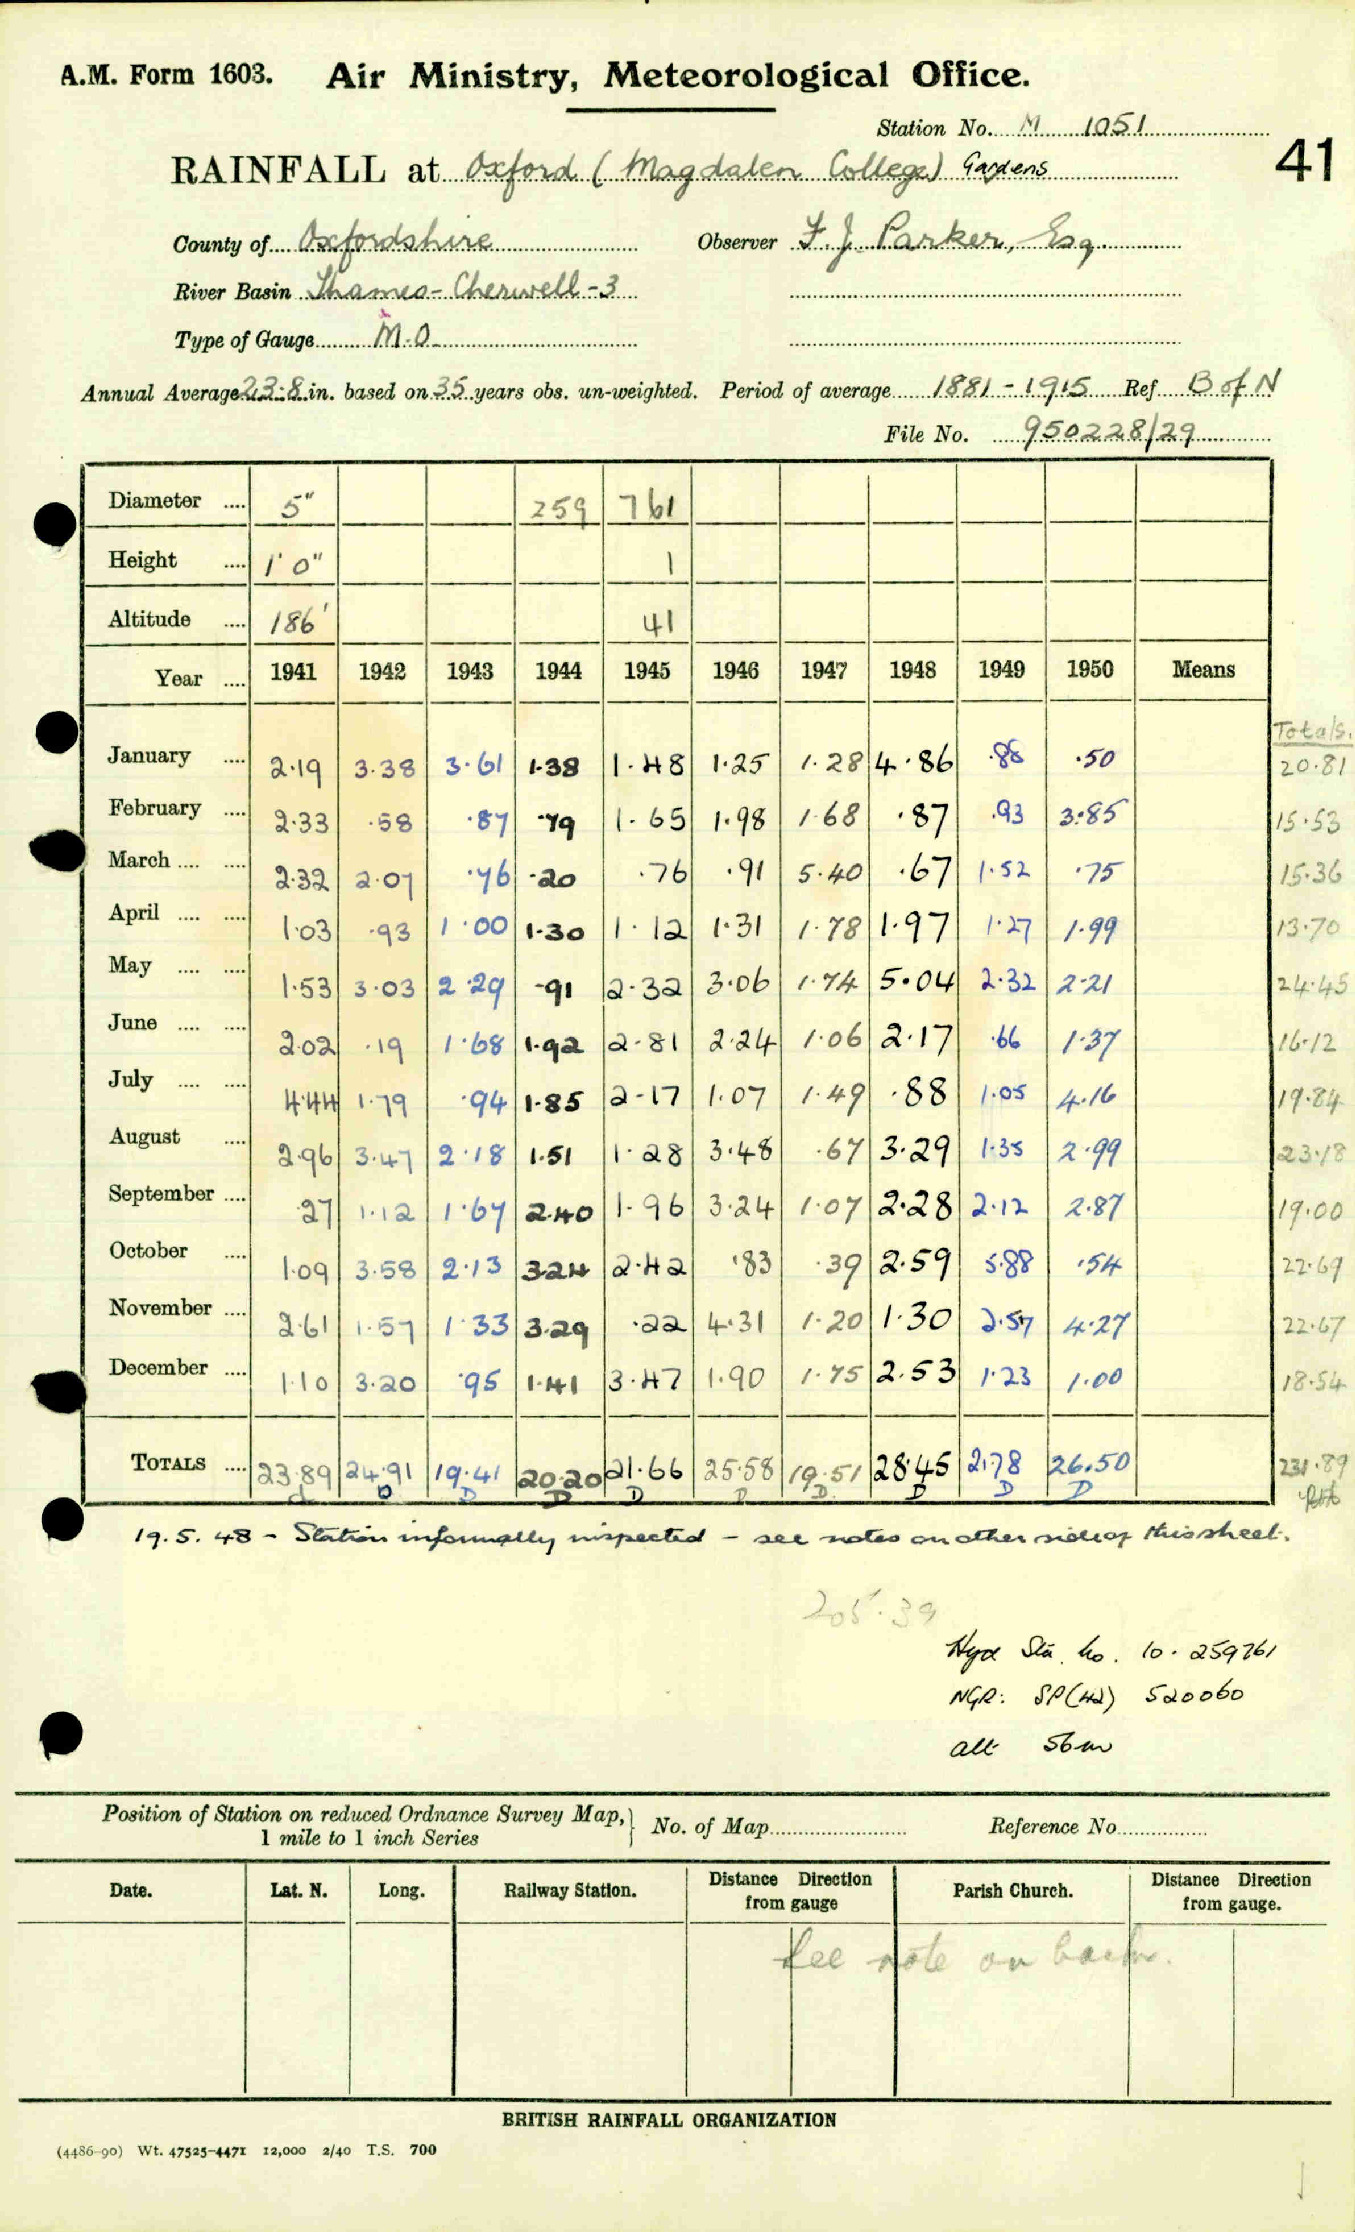 A.M. Form 1603. Air Ministry, Meteorological Office.
Station No. M 1051
41
RAINFALL at Oxford (Magdalen College) Gardens
County of Oxfordshire Observer F. J. Parker, Esq.
River Basin Thames - Cherwell - 3
Type of Gauge M.O.
Annual Average 23.8 in. based on 35 years obs. un-weighted. Period of average 1881 - 1915 Ref B of N
File No. 950228/29
Diameter .... 5" 259 761
Height .... 1' 0" 1
Altitude .... 186' 41
Year .... 1941 1942 1943 1944 1945 1946 1947 1948 1949 1950 Means
Totals.
January .... 2.19 3.38 3.61 1.38 1.48 1.25 1.28 4.86 .88 .50 20.81
February .... 2.33 .58 .87 .79 1.65 1.98 1.68 .87 .93 3.85 15.53
March .... .... 2.32 2.07 .76 .20 .76 .91 5.40 .67 1.52 .75 15.36
April .... .... 1.03 .93 1.00 1.30 1.12 1.31 1.78 1.97 1.27 1.99 13.70
May .... .... 1.53 3.03 2.29 .91 2.32 3.06 1.74 5.04 2.32 2.21 24.45
June .... .... 2.02 .19 1.68 1.92 2.81 2.24 1.06 2.17 .66 1.37 16.12
July .... .... 4.44 1.79 .94 1.85 2.17 1.07 1.49 .88 1.05 4.16 19.84
August .... 2.96 3.47 2.18 1.51 1.28 3.48 .67 3.29 1.35 2.99 23.18
September .... .27 1.12 1.67 2.40 1.96 3.24 1.07 2.28 2.12 2.87 19.00
October .... 1.09 3.58 2.13 3.24 2.42 .83 .39 2.59 5.88 .54 22.69
November .... 2.61 1.57 1.33 3.29 .22 4.31 1.20 1.30 2.57 4.27 22.67
December .... 1.10 3.20 .95 1.41 3.47 1.90 1.75 2.53 1.23 1.00 18.54
TOTALS .... 23.89 24.91 19.41 20.20 21.66 25.58 19.51 28.45 21.78 26.50 231.89
D D D D D D D D D
19. 5. 48 - Station informally inspected - see notes on other side of this sheet.
205.39
Hyd Sta. No. 10. 259761
NGR: SP(42) 520060
alt 56m
Position of Station on reduced Ordnance Survey Map, 1 mile to 1 inch Series } No. of Map Reference No
Date. Lat. N. Long. Railway Station. Distance Direction from gauge Parish Church. Distance Direction from gauge.
See note on back.
BRITISH RAINFALL ORGANIZATION
(4486-90) Wt. 47525-4471 12,000 2/40 T.S. 700